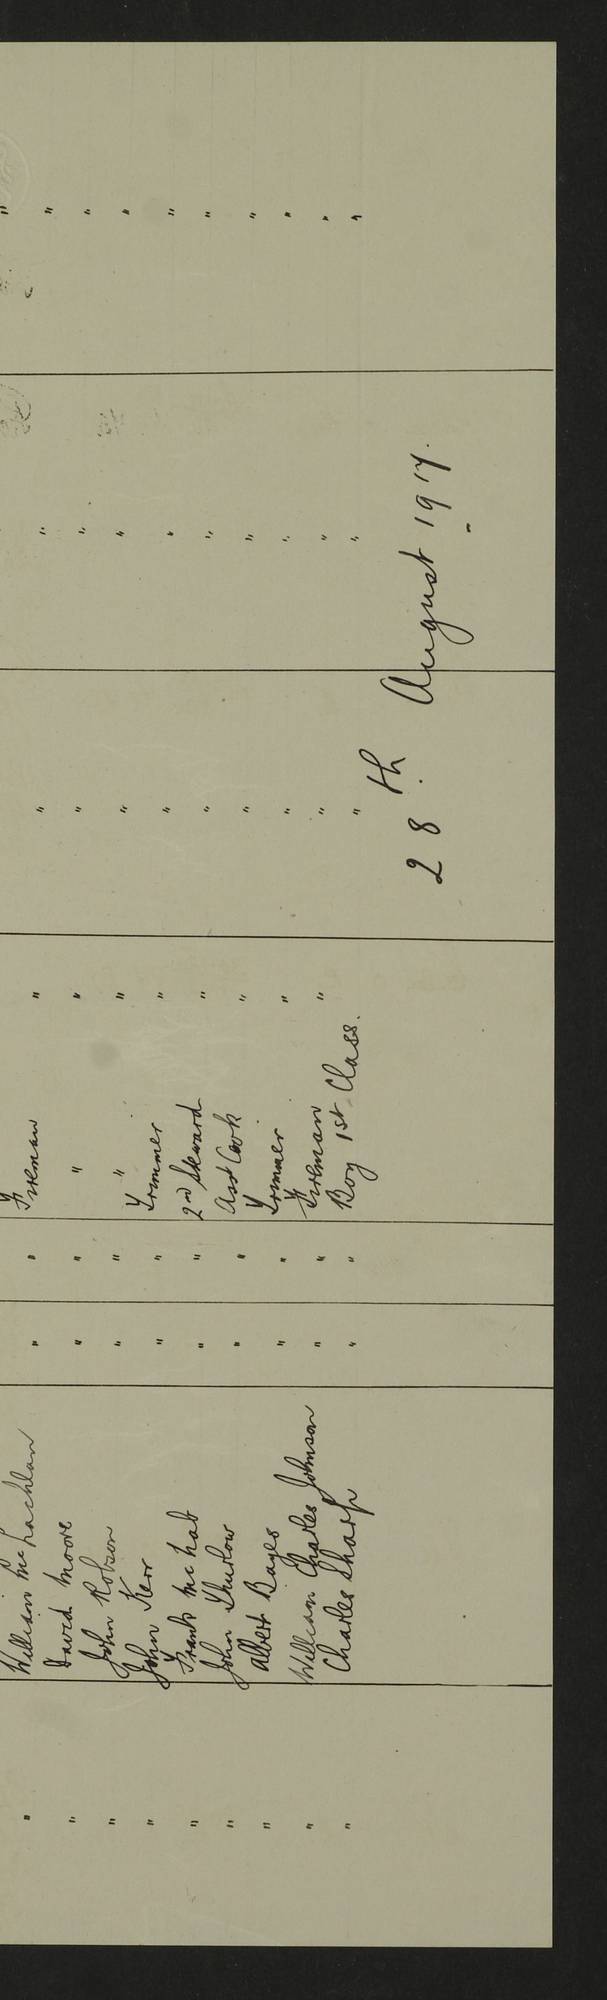 " William McLachlan " " Fireman " " " "
" David Moore " " " " " " "
" John Robson " " " " " " "
" John Kerr " " Trimmer " " " "
" Frank McNab " " 2nd Steward " " " "
" John Thurlow " " Asst Cook " " " "
" Albert Bayes " " Trimmer " " " "
" William Charles Johnson " " Fireman " " " "
" Charles Sharp " " Boy 1st Class. " " "
28th August 1917.